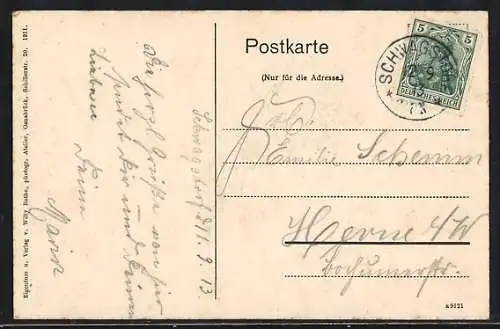 Eigentum u. Verlag v. Willy Rathe, photogr. Atelier, Osnabrück, Schillerstr. 20. 1911.
Postkarte
(Nur für die Adresse.)
5 5
DEUTSCHES REICH
SCHWAGSTORF
Frl.
Emilie Schemm
Herne i/W
Bochumerstr.
a 9121
Schwagstorf d 11. 9. 13.
Die herzl. Grüße von hier
sendet Dir und Deinen
Lieben
Deine